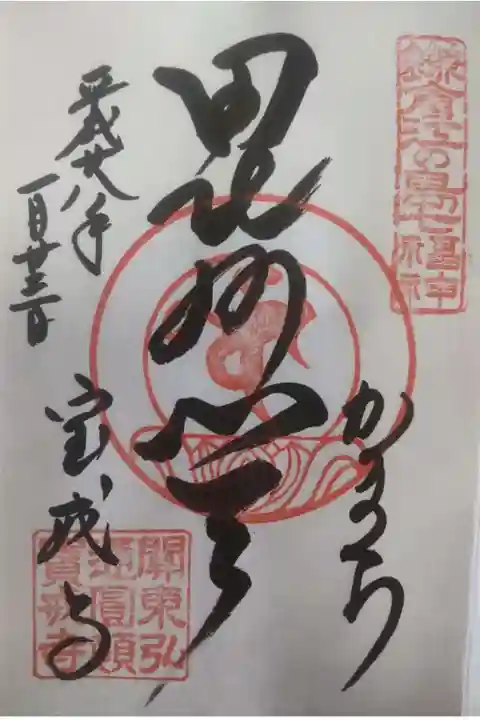 鎌倉江の島七福神
かまくら
毘沙門天
平成廿八年
一月廿三日
宝戒寺
關東弘
通圓頓
寶戒寺